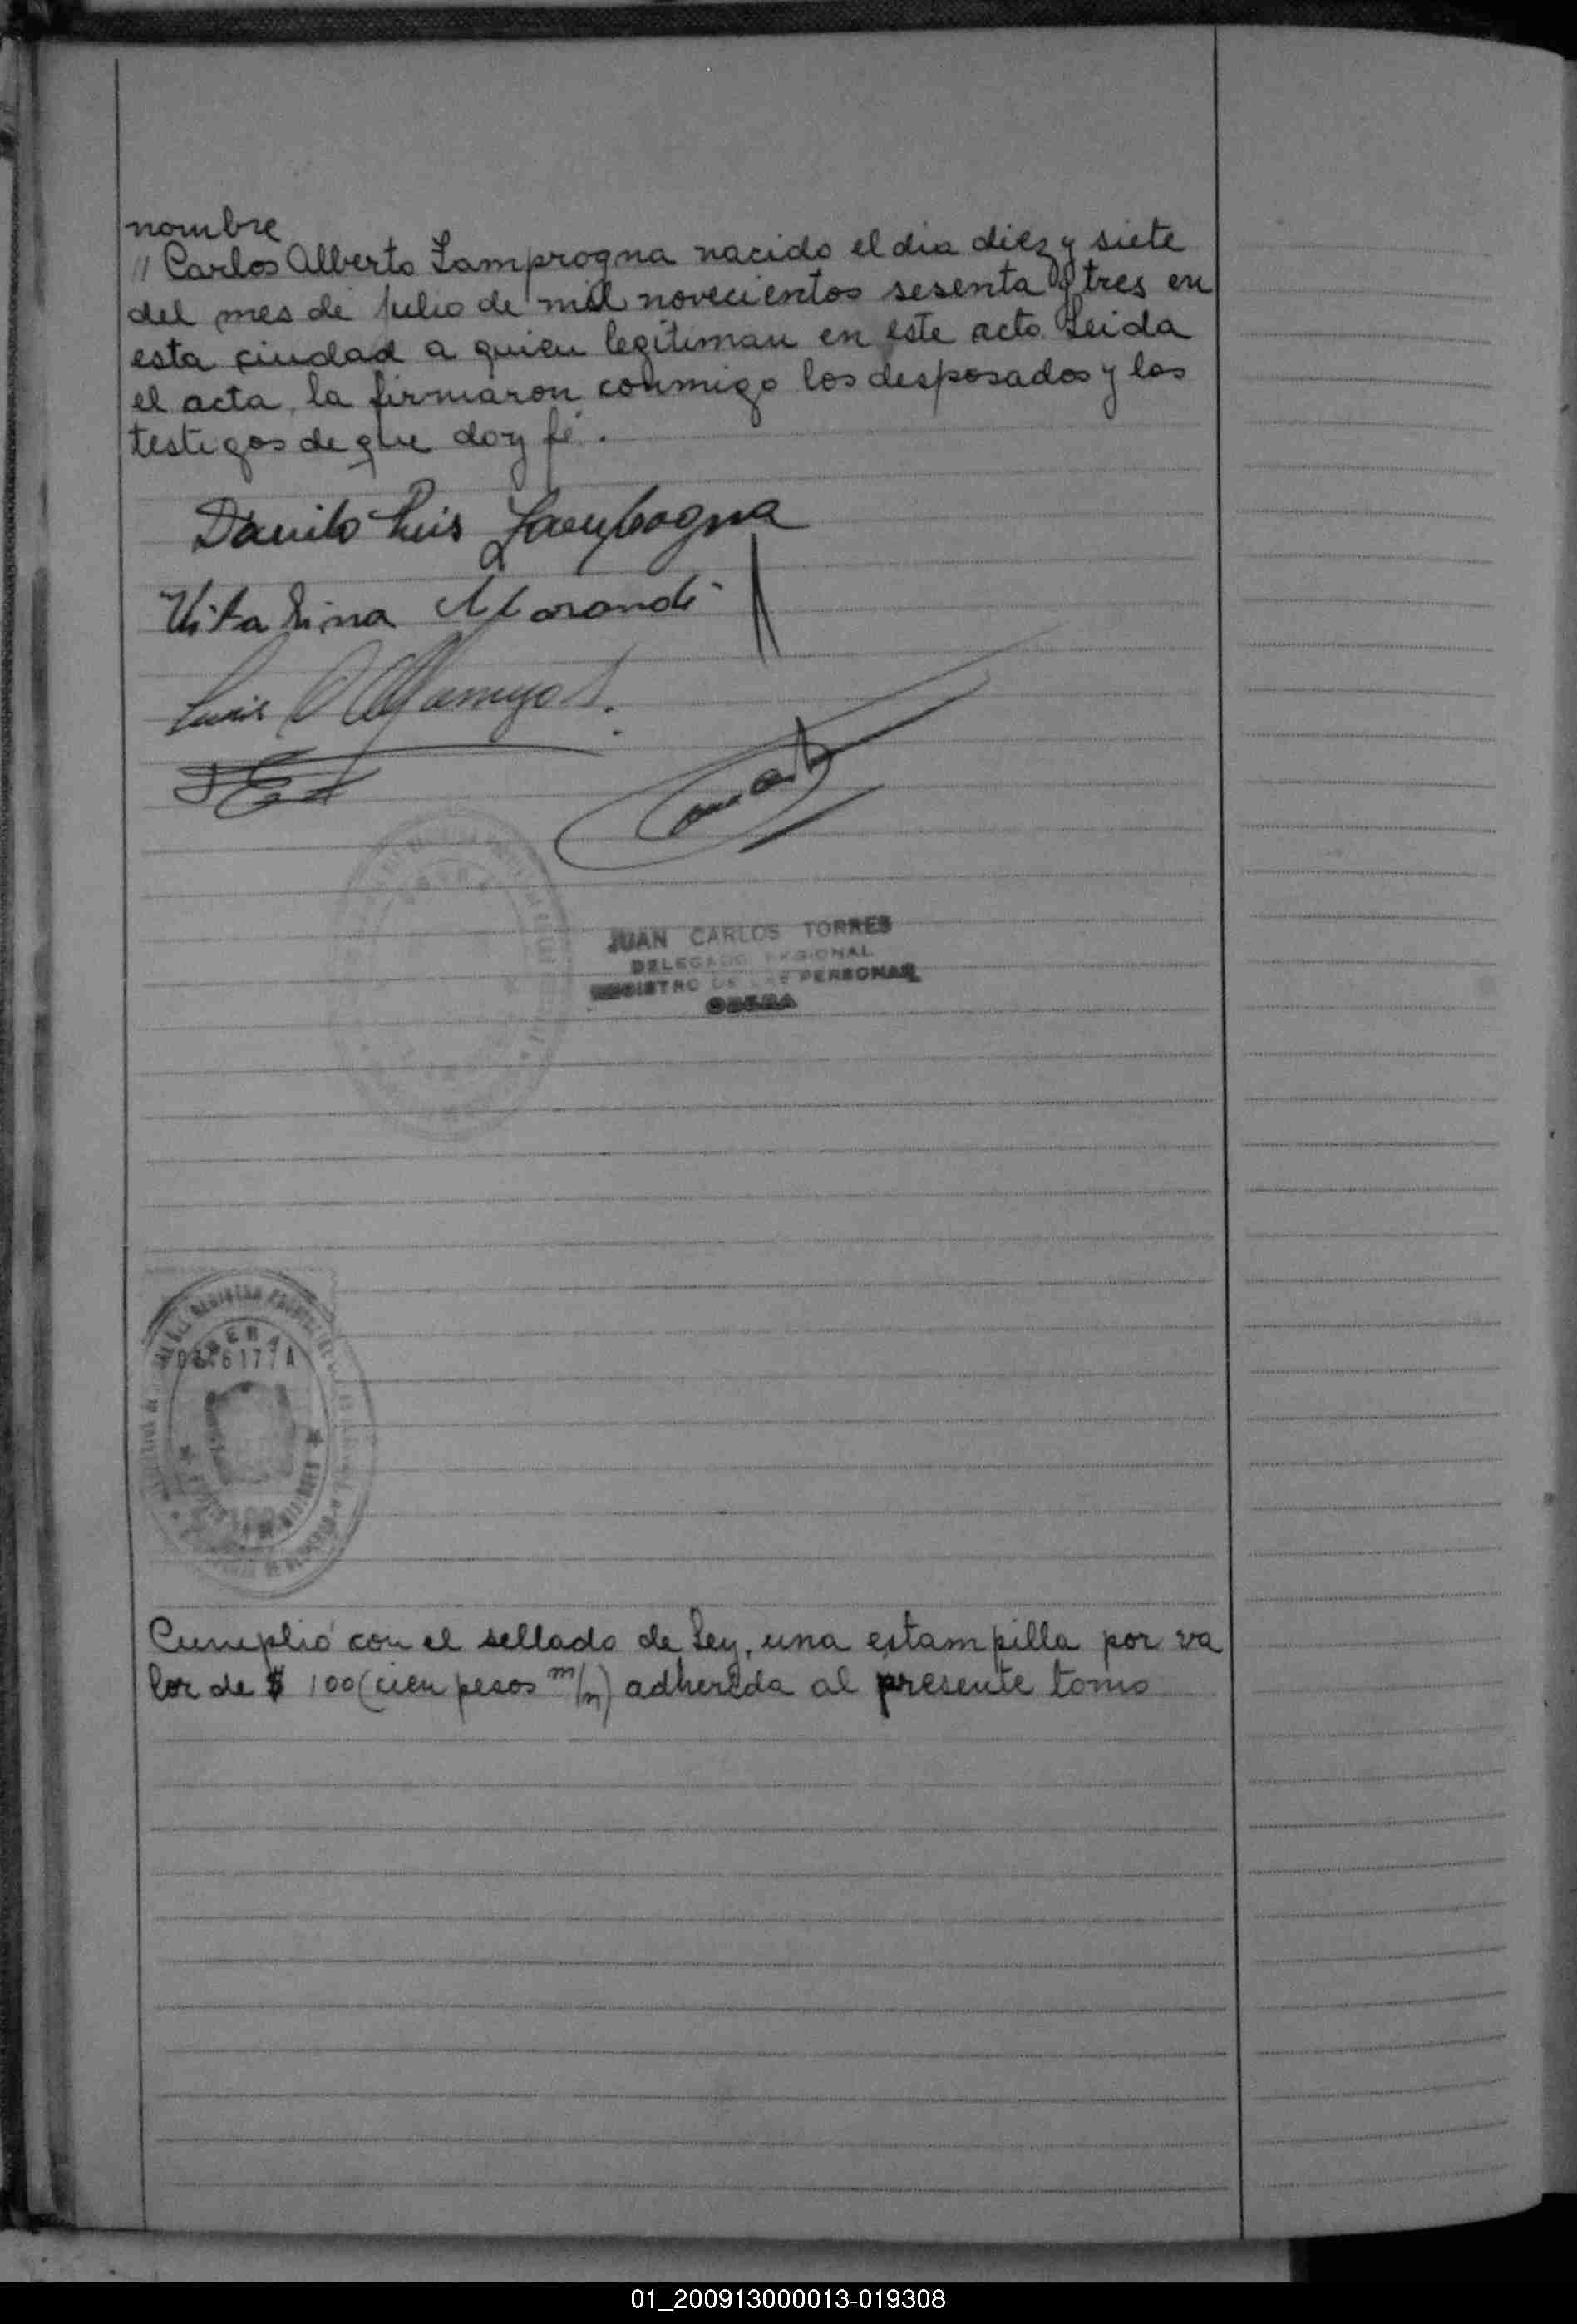 nombre
// Carlos Alberto Lamprogna nacido el dia diez y siete
del mes de julio de mil novecientos sesenta y tres en
esta ciudad a quien legitiman en este acto. Leida
el acta, la firmaron conmigo los desposados y los
testigos de que doy fé.
Danilo Luis
Vita Lina Morandi
Luis
JUAN CARLOS TORRES
DELEGADO REGIONAL
REGISTRO DE LAS PERSONAS
OBERA
OBERA
Cumplió con el sellado de Ley, una estampilla por va
lor de $ 100 (cien pesos m/n) adherida al presente tomo
01_200913000013-019308